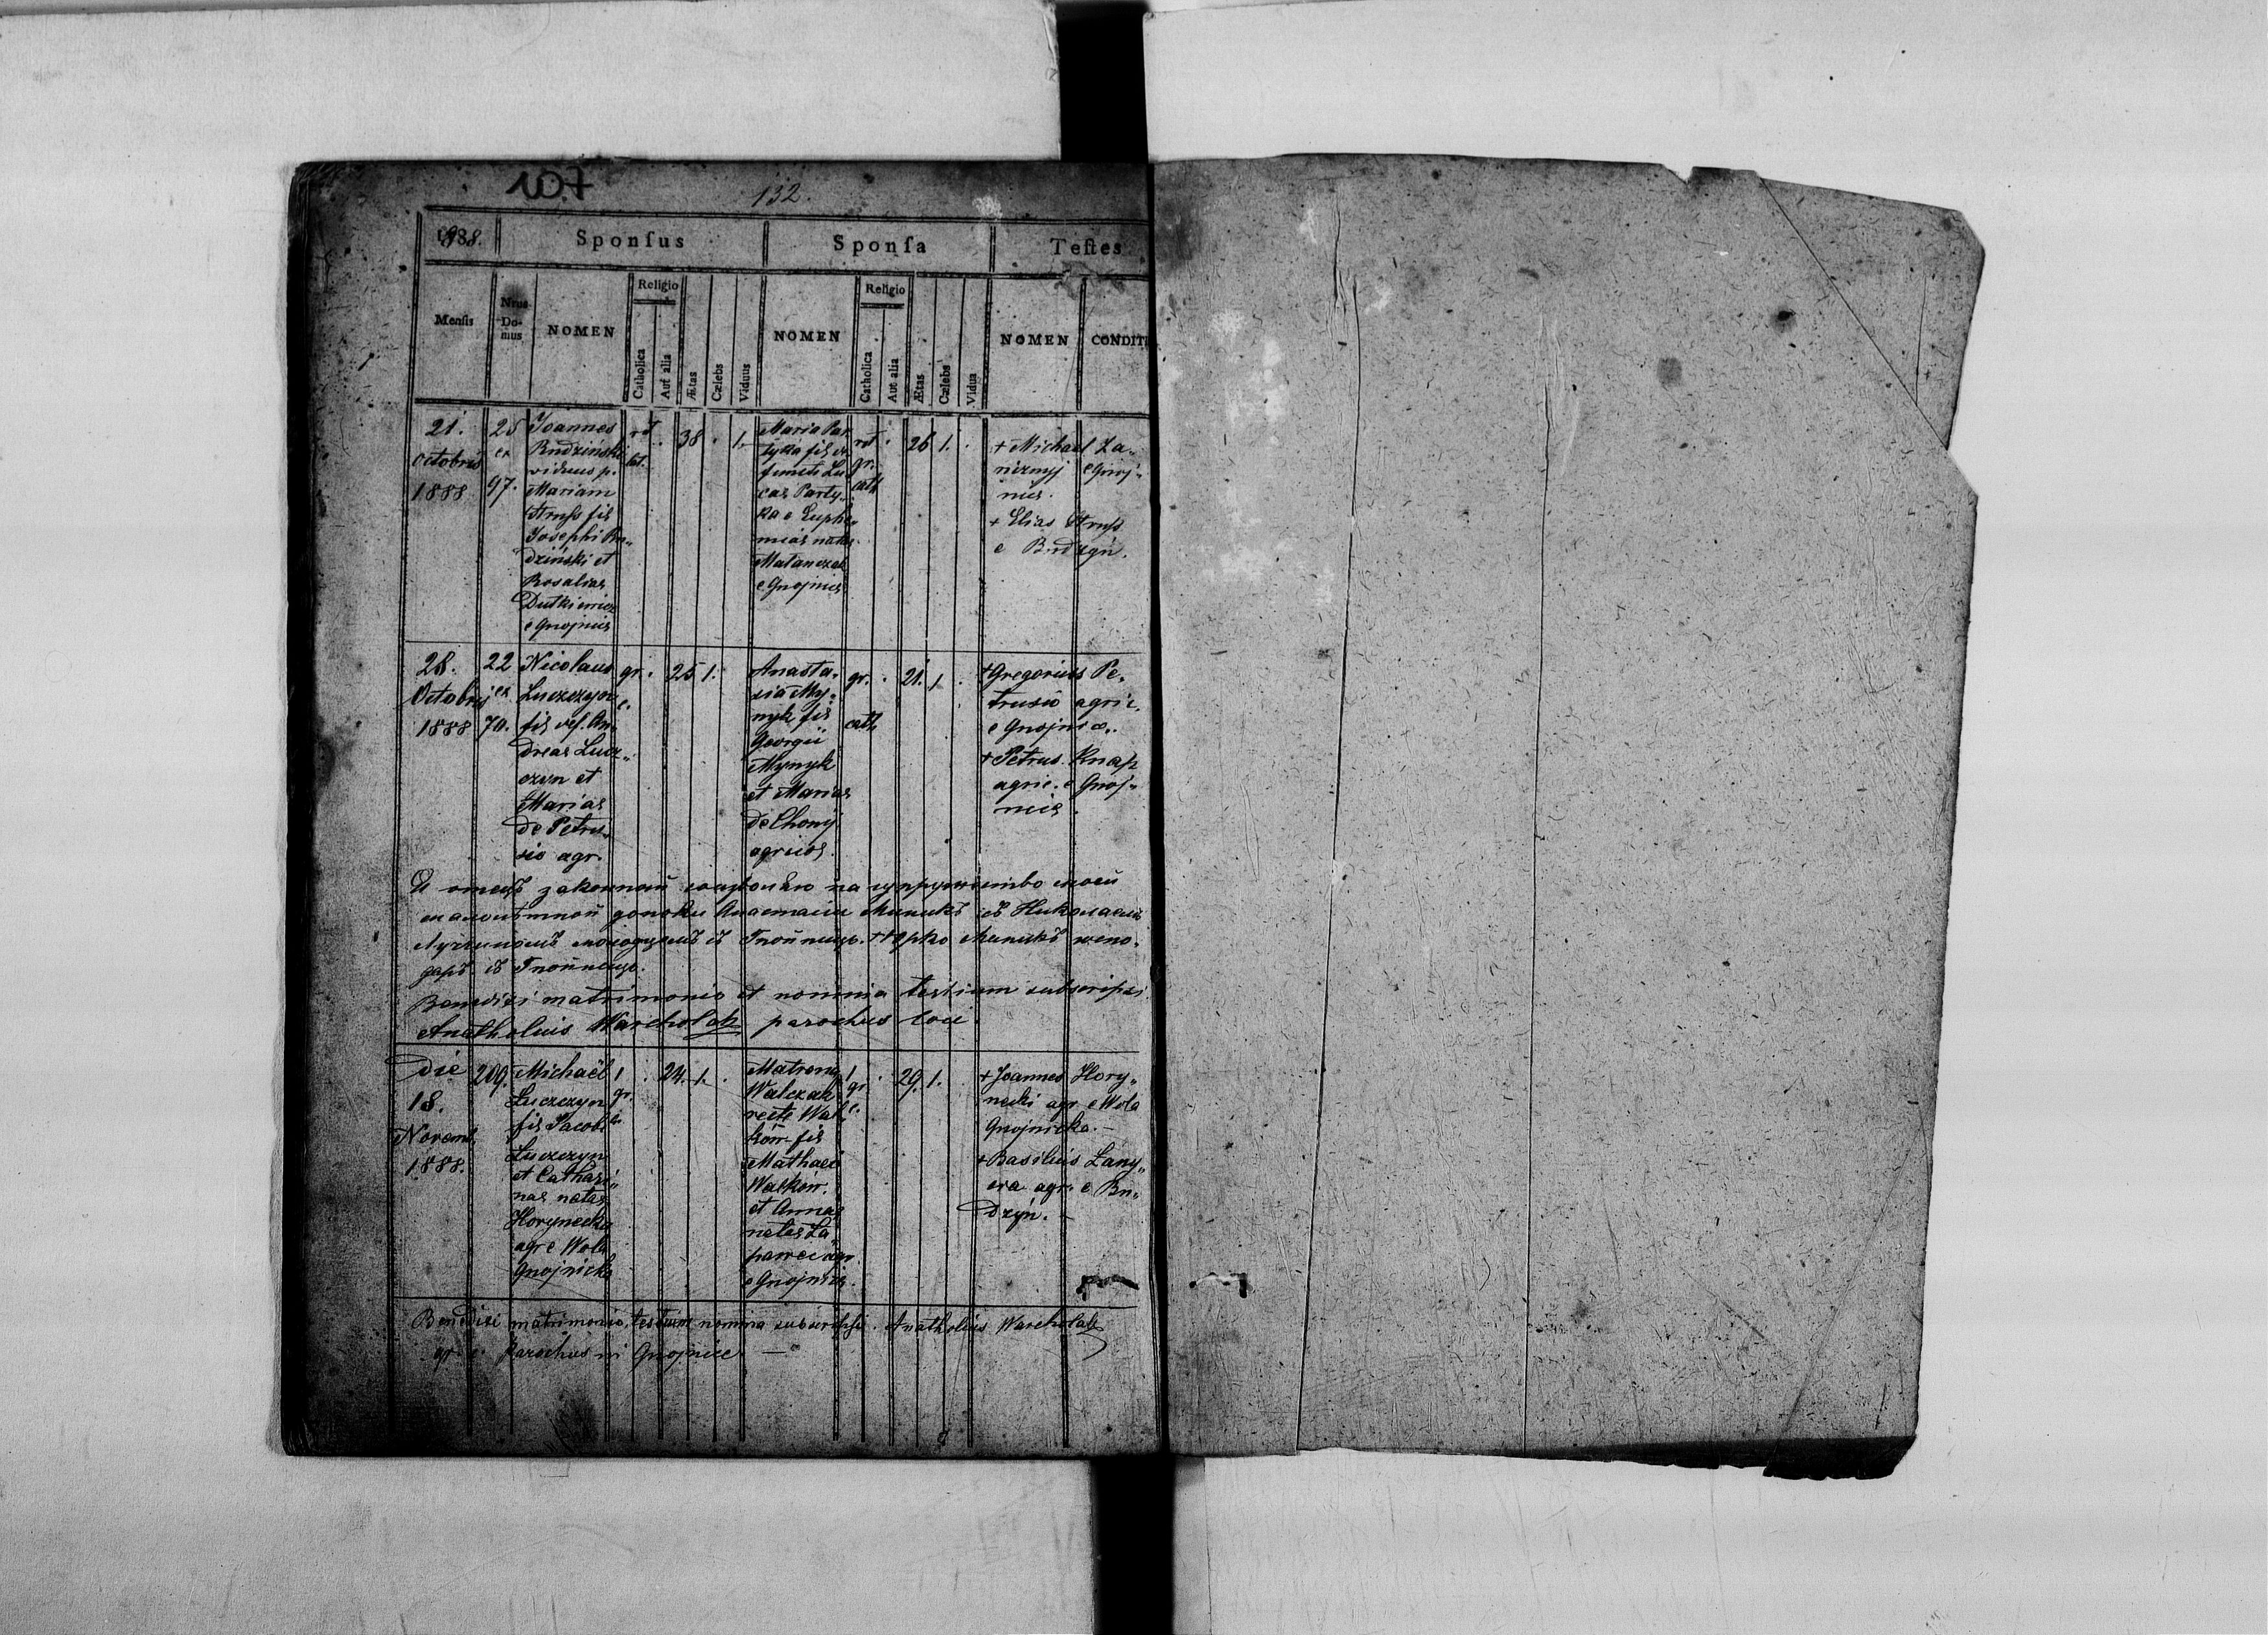 107
132.
1888. Sponſus Sponſa Teſtes
Menſis Nrus Do- mus NOMEN Religio Catholica Aut alia Ætas Cælebs Viduus NOMEN Religio Catholica Aut alia Ætas Cælebs Vidua NOMEN CONDITI
21.
octobris
1888
25
et
97.
Joannes
Budziński
viduus p.
Mariam
Struss fil
Josephi Bu„
dziński et
Rosaliae
Dutkiewicz
e Gnojnice
rt
lat.
38 . 1.
Maria Par
tyka fil
functi Lu
cae Party„
ka e Euphe„
miae natae
e Gnojnice
rt
gr.
cath
26 1. .
+ Michael Za„
e Gnoj„
nice.
+ Elias Struss
e Budzyń.
28.
Octobris
1888
22
et
70.
Nicolaus
Luczczyn
fil def. An„
dreae Lucz„
czyn et
Mariae
de Petru„
sio agr.
gr.
c.
25 1.
Anasta„
sia My„
nyk fil
Georgii
Mynyk
et Mariae
de Chomij
agricol.
gr.
cath
21. 1 .
+ Gregorius Pe„
trusio agric.
e Gnojnice.
+ Petrus Knap
agric. e Gnoj„
nice
Я отецъ законный на супружество моей
малолѣтной доньки Анастасіи Миникъ съ Николаемъ
Лучиномъ зъ Гнойницѣ. Миникъ
зъ Гнойницѣ.
Benedixi matrimonio et nomina testium subscripsi
Anatholius Warcholak parochus loci
Die
18.
Novemb.
1888.
209.
Michaël
Luczczyn
fil Jacobi
Luczczyn
et Cathari„
nae natae
Horynecka
agr e Wola
Gnojnicka
1
gr.
c.
24. 1.
Matrona
Walczak
recte Wal
ków fil
Mathaei
Walków.
et Annae
natae Ła
agr.
e Gnojnice.
1
gr.
c.
29. 1.
+ Joannes Hory„
necki agr e Wola
Gnojnicka. —
+ Basilius Lany„
agr. e Bu„
dzyń. —
Benedixi matrimonio, testium nomina subscripsi. Anatholius Warcholak
gr. c. parochus in Gnojnice —